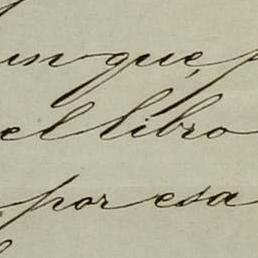 un que, p
el libro
por esa